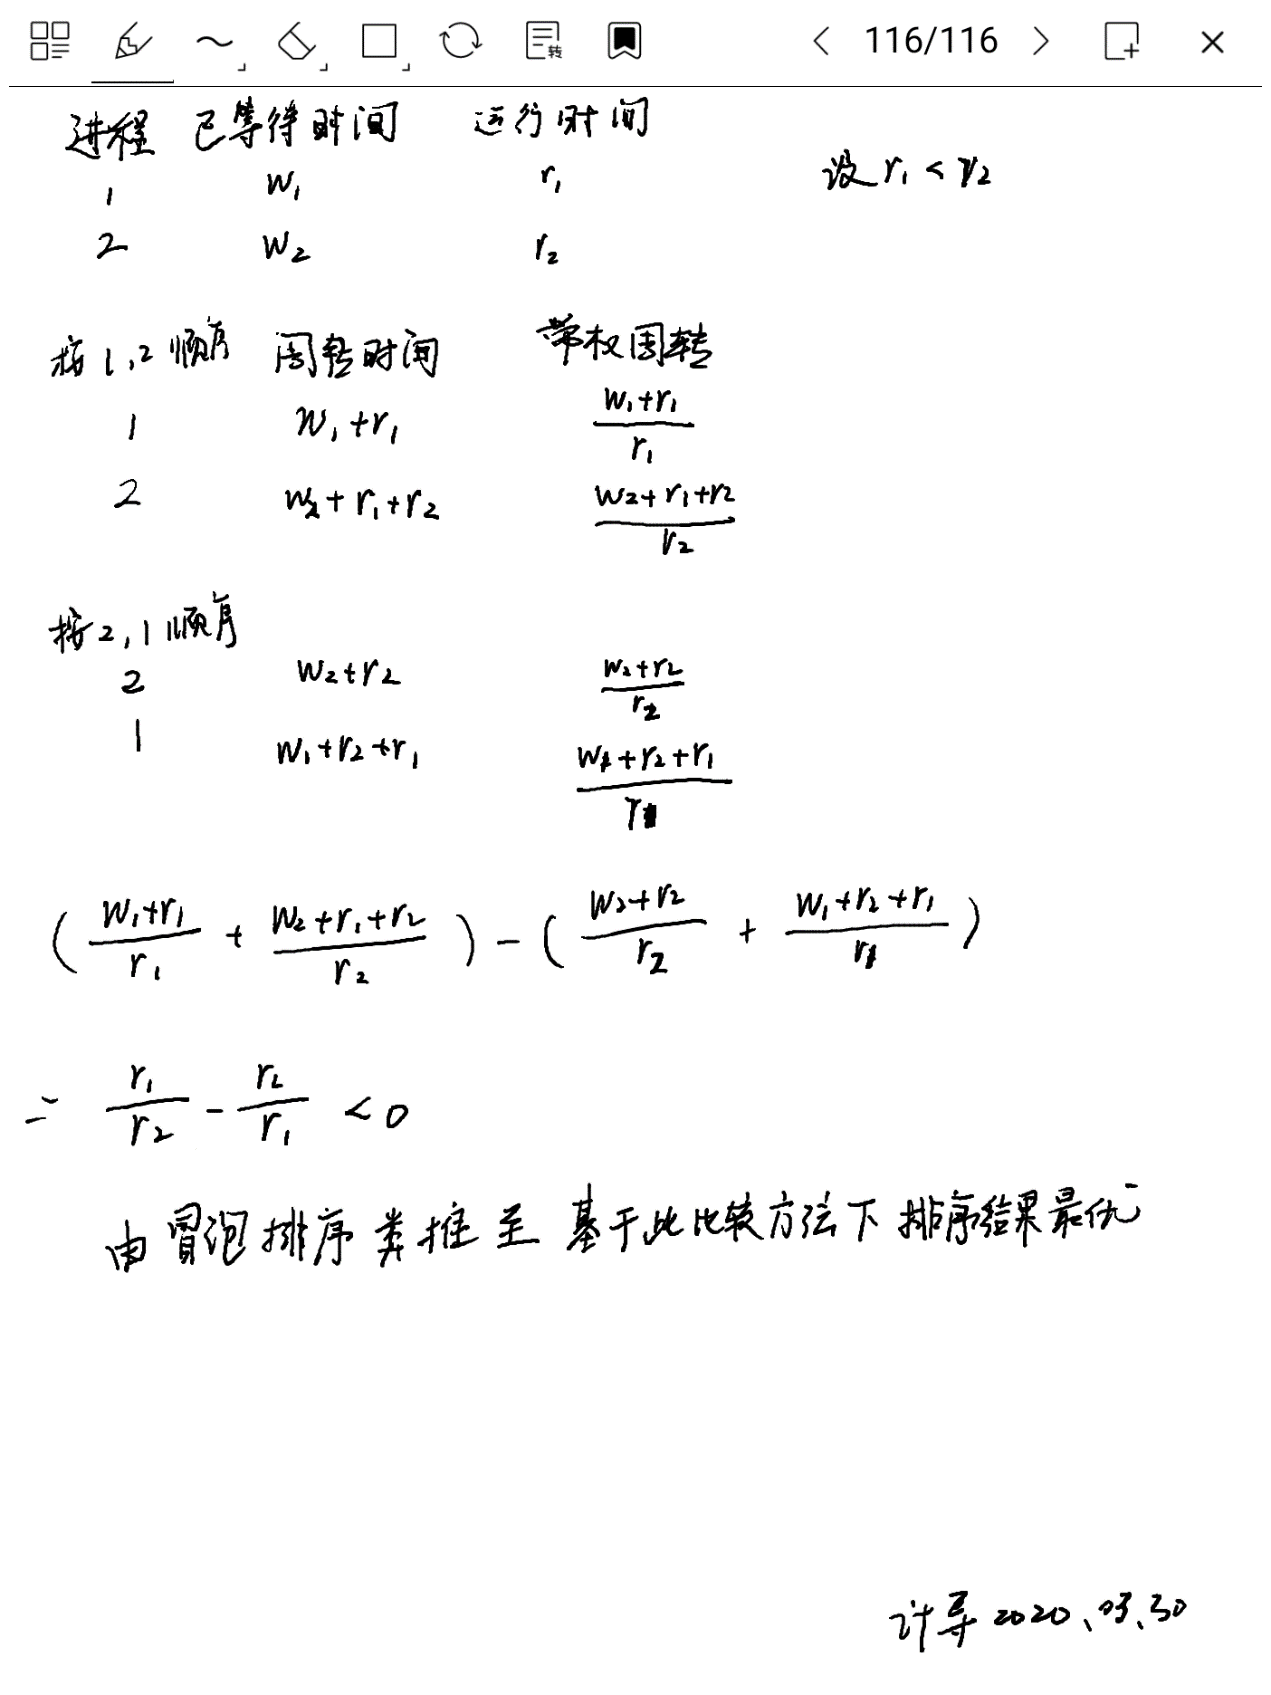 转
116/116
进程 已等待时间 运行时间
1 w₁ r₁ 设 r₁ < r₂
2 w₂ r₂
按1,2顺序 周转时间 带权周转
1 w₁+r₁ (w₁+r₁)/r₁
2 w₂+r₁+r₂ (w₂+r₁+r₂)/r₂
按2,1顺序
2 w₂+r₂ (w₂+r₂)/r₂
1 w₁+r₂+r₁ (w₁+r₂+r₁)/r₁
((w₁+r₁)/r₁ + (w₂+r₁+r₂)/r₂) - ((w₂+r₂)/r₂ + (w₁+r₂+r₁)/r₁)
= r₁/r₂ - r₂/r₁ < 0
由冒泡排序类推至 基于此比较方法下排序结果最优
计导 2020、03、30